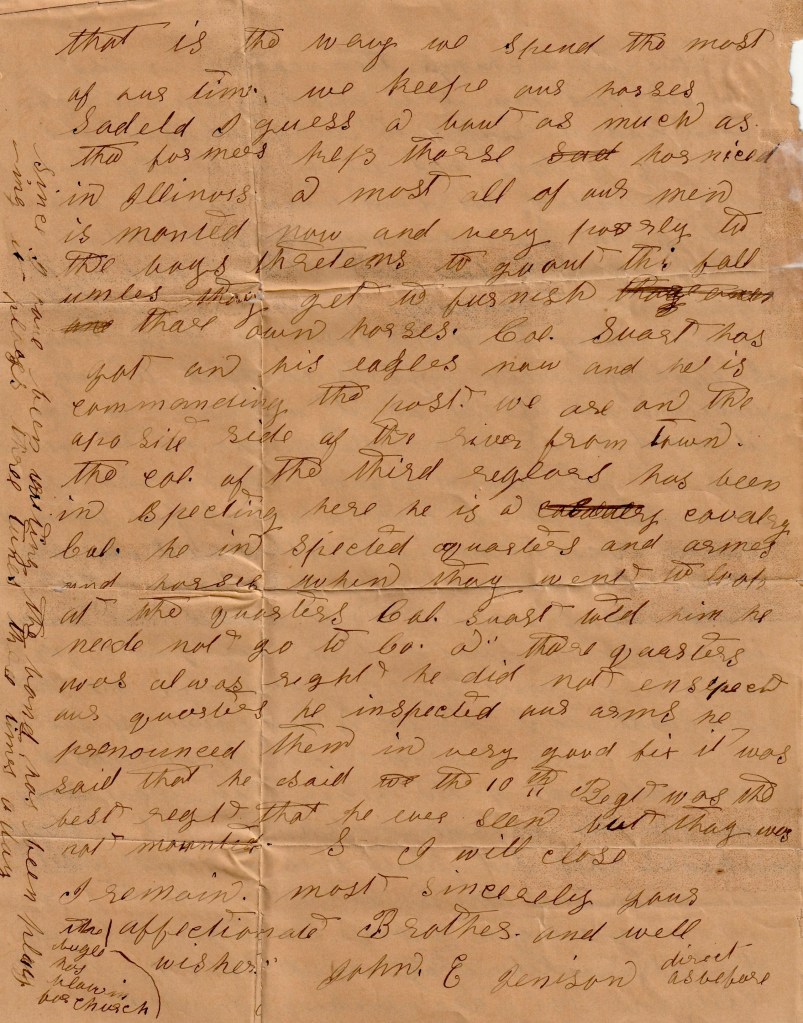 that is the way we spend the most
of our time. we keepe our horses
Sadeld I guess a bout as much as
the formers keep thare horniced
in Illinois. a most all of our men
is monted now and very poorly to
the boys thretens to quout this fall
unles thay get to furnish
thare own horses. Col. Suart has
got on his eagles now and he is
commanding the post. we are on the
aposite side of the river from town.
the col. of the third reglers has been
in Specting here he is a cavalry
Col. he in spected quarters and armes
and horses when thay went to look
at the quarters Col. Suart told him he
neede not go to Co. A" thare quarters
was alwas right he did not enspect
our quarters he inspected our arms he
pronounced them in very good fix it was
said that he said the 10 th Regt was the
best regt that he ever seen but thay was
not mounted. I will close
I remain. most sincerely your
affectionate Brother. and well
wisher. John. E Jenison direct as before
the bugle has blown for church
Since I have been writing the band has been play
ing it plays three times a day